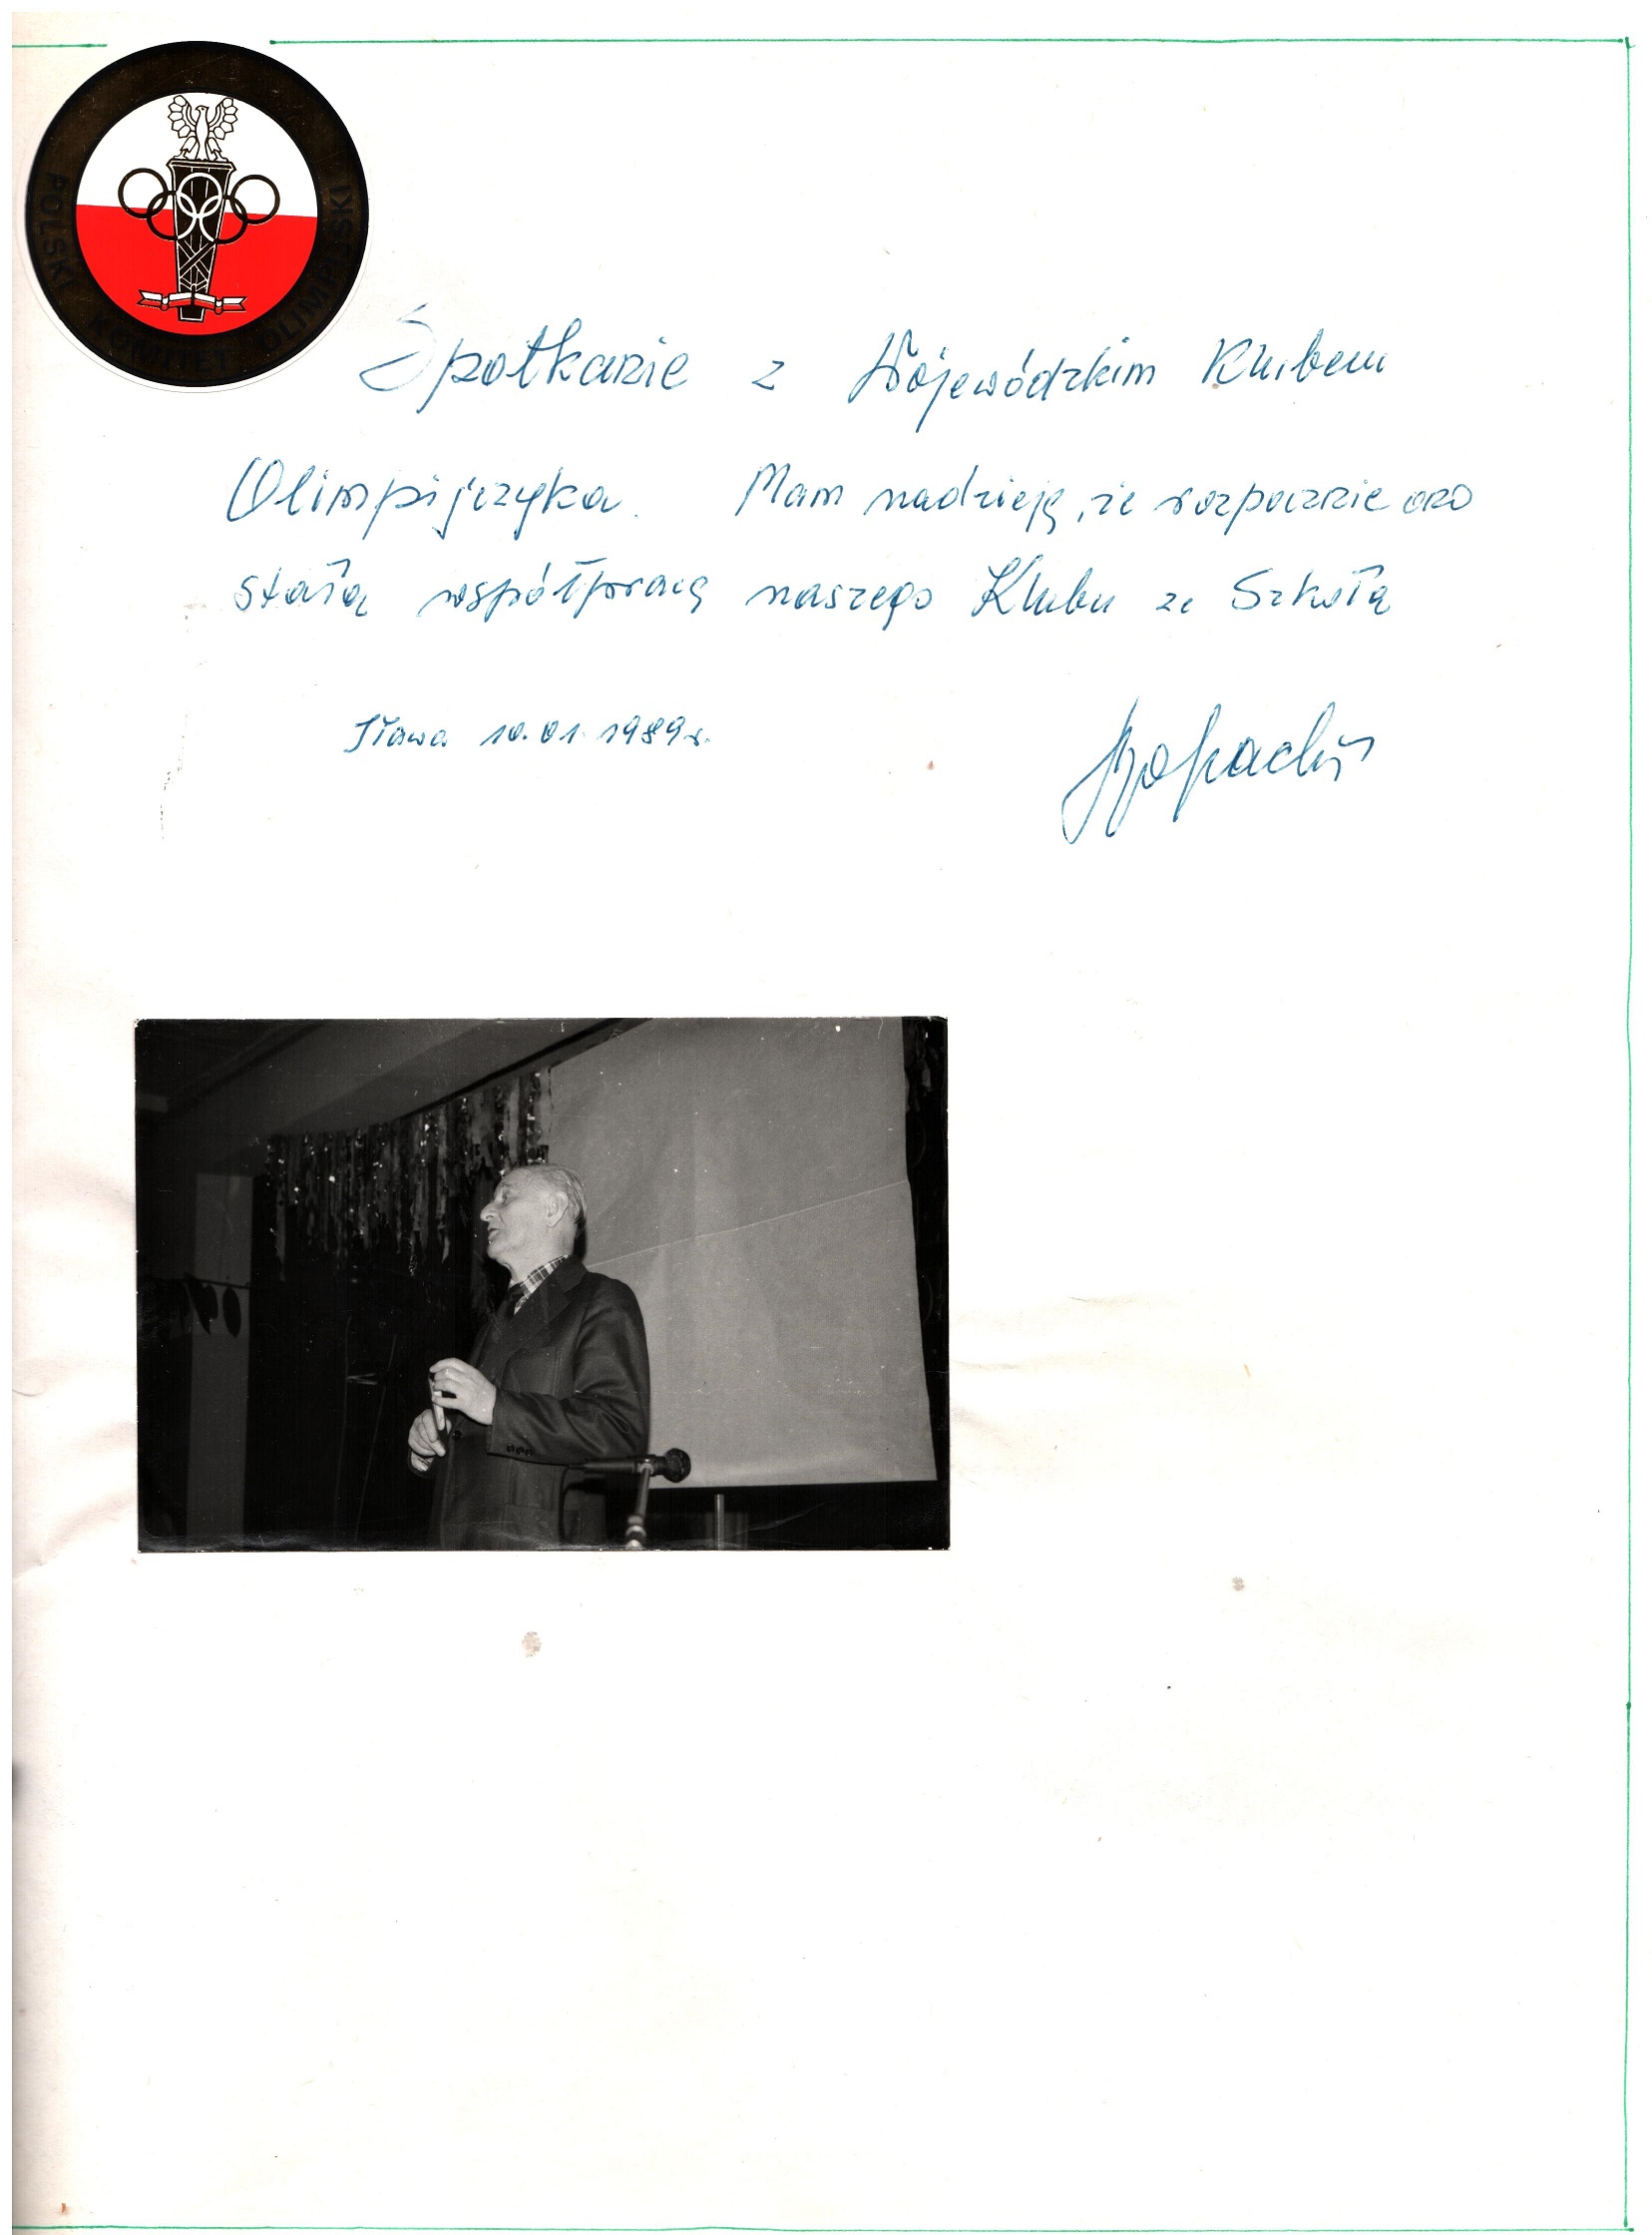 POLSKI KOMITET OLIMPIJSKI
Spotkanie z Wojewódzkim Klubem
Olimpijczyka. Mam nadzieję, że rozpocznie ono
stałą współpracę naszego Klubu ze Szkołą
Iława 10.01.1989r.